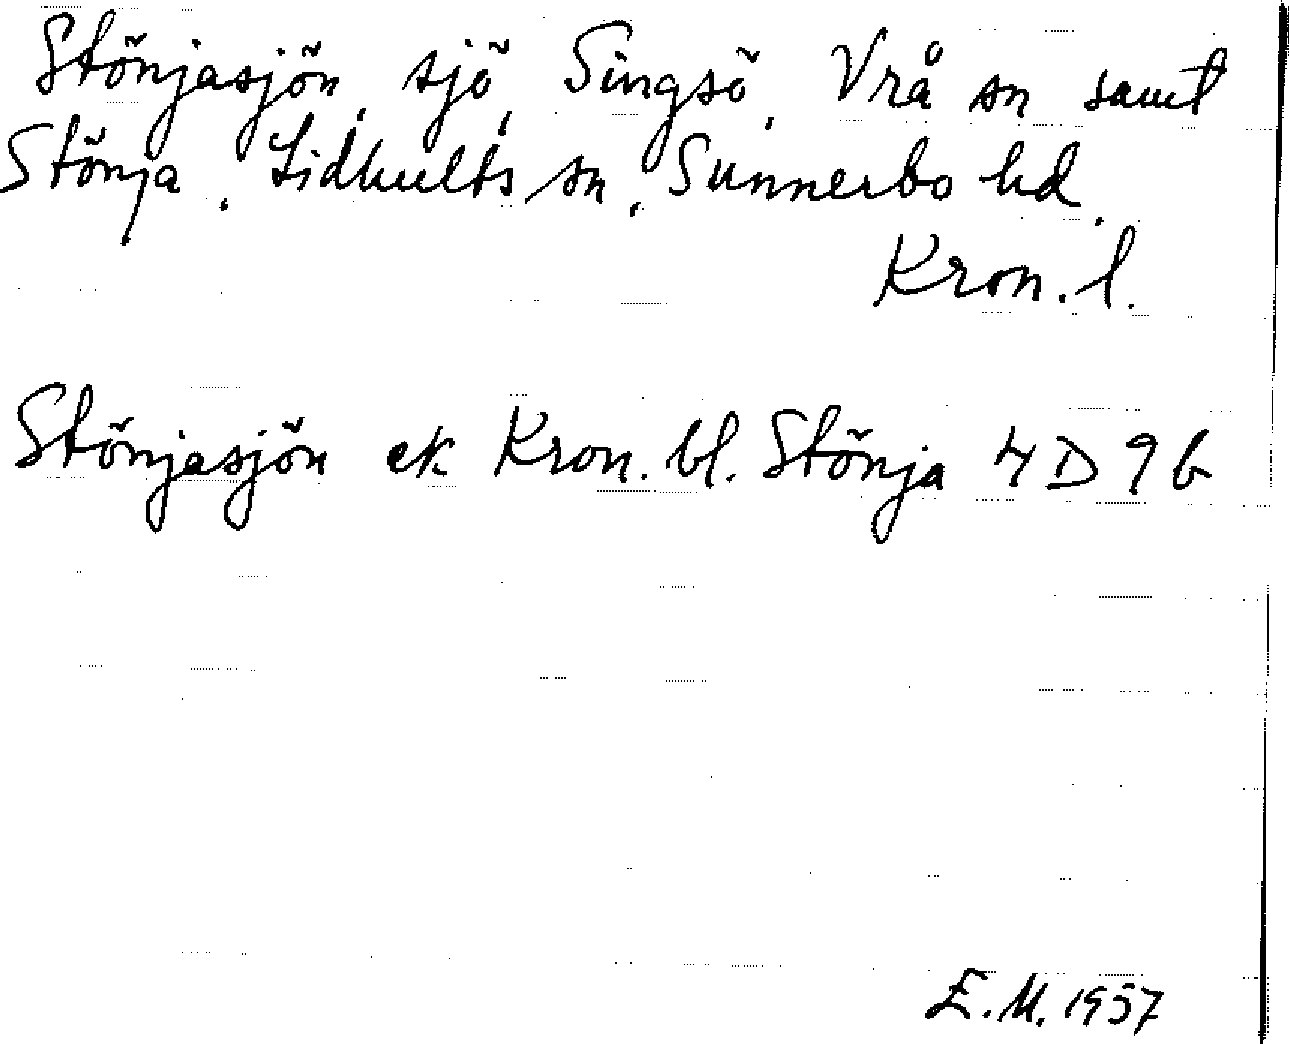 Stönjasjön, sjö, Singsö, Vrå sn samt
Stönja, Lidhults sn, Sunnerbo hd,
Kron. l.
Stönjasjön ek Kron. bl. Stönja 4 D 9 b
E.M. 1957